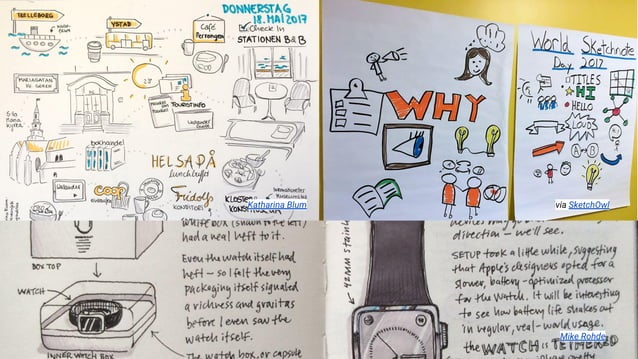 TRELLEBORG
YSTAD
DONNERSTAG
18. MAI 2017
Café
Perrongen
Check In
STATIONEN B&B
MARIAGATAN
TOURISTINFO
kyrka
bokhandel
HELSA PÅ
Lunchbuffet
coop
Fridolfs
KONDITORI
KLOSTER
KONSTMUSEUM
Katharina Blum
WHY
World Sketchnote
Day 2017
TITLES
HI
HELLO
LOUD
A
B
via SketchOwl
White box (shown to the left)
had a real heft to it.
Even the watch itself had
heft — so I felt the very
packaging itself signaled
a richness and gravitas
before I even saw the
watch itself.
The watch box, or capsule
BOX TOP
WATCH
INNER WATCH BOX
42MM
direction — we'll see.
SETUP took a little while, suggesting
that Apple's designers opted for a
slower, battery-optimized processor
for the watch. It will be interesting
to see how battery life shakes out
in regular, real-world usage.
the WATCH is TETHERED
Mike Rohde